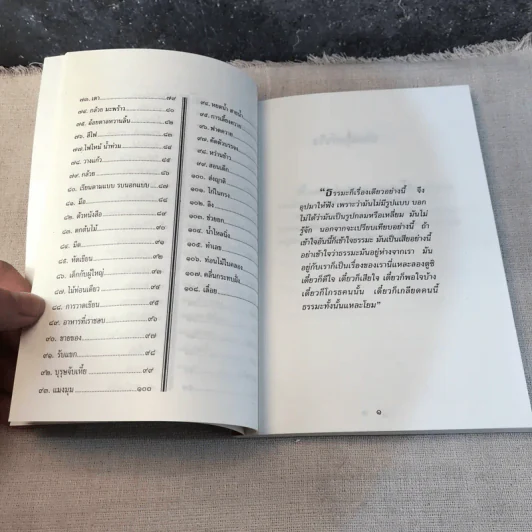 ๗๓. เตา ๗๙
๗๔. กล้วย มะพร้าว ๘๐
๗๕. อ้อยตาลหวานลิ้น ๘๒
๗๖. สีไฟ ๘๓
๗๗. ไฟไหม้ น้ำท่วม ๘๔
๗๘. วางแก้ว ๘๕
๗๙. กล้วย
๘๐. เรียนตามแบบ รบนอกแบบ
๘๑. มือ
๘๒. ตัวหนังสือ
๘๓. ตกต้นไม้
๘๔. มีด
๘๕. หัดเขียน
๘๖. เด็กกับผู้ใหญ่
๘๗. ไม้ท่อนเดียว
๘๘. การวาดเขียน ๙๕
๘๙. อาหารที่เราชอบ ๙๖
๙๐. ขายของ ๙๗
๙๑. รับแขก ๙๘
๙๒. บุรุษจับเหี้ย ๙๙
๙๓. แมงมุม ๑๐๐
๙๔. หยดน้ำ สายน้ำ
๙๕. การเลี้ยงควาย
๙๖. ฟาดควาย
๙๘. หว่านข้าว
๙๙. สอนเด็ก
๑๐๐. ส่งญาติ
๑๐๑. ไก่ในกรง
๑๐๒. ลิง
๑๐๓. ช่วยยก
๑๐๔. น้ำไหลนิ่ง
๑๐๕. ทำเลย
๑๐๖. ท่อนไม้ในคลอง
๑๐๗. คลื่นกระทบฝั่ง
๑๐๘. เลื่อย
"ธรรมะก็เรื่องเดียวอย่างนี้ จึง
อุปมาให้ฟัง เพราะว่ามันไม่มีรูปแบบ บอก
ไม่ได้ว่ามันเป็นรูปกลมหรือเหลี่ยม มันไม่
รู้จัก นอกจากจะเปรียบเทียบอย่างนี้ ถ้า
เข้าใจอันนี้ก็เข้าใจธรรมะ มันเป็นเสียอย่างนี้
อย่าเข้าใจว่าธรรมะมันอยู่ห่างจากเรา มัน
อยู่กับเราก็เป็นเรื่องของเรานี่แหละลองดูซิ
เดี๋ยวก็ดีใจ เดี๋ยวก็เสียใจ เดี๋ยวก็พอใจบ้าง
เดี๋ยวก็โกรธคนนั้น เดี๋ยวก็เกลียดคนนี้
ธรรมะทั้งนั้นแหละโยม"
๑